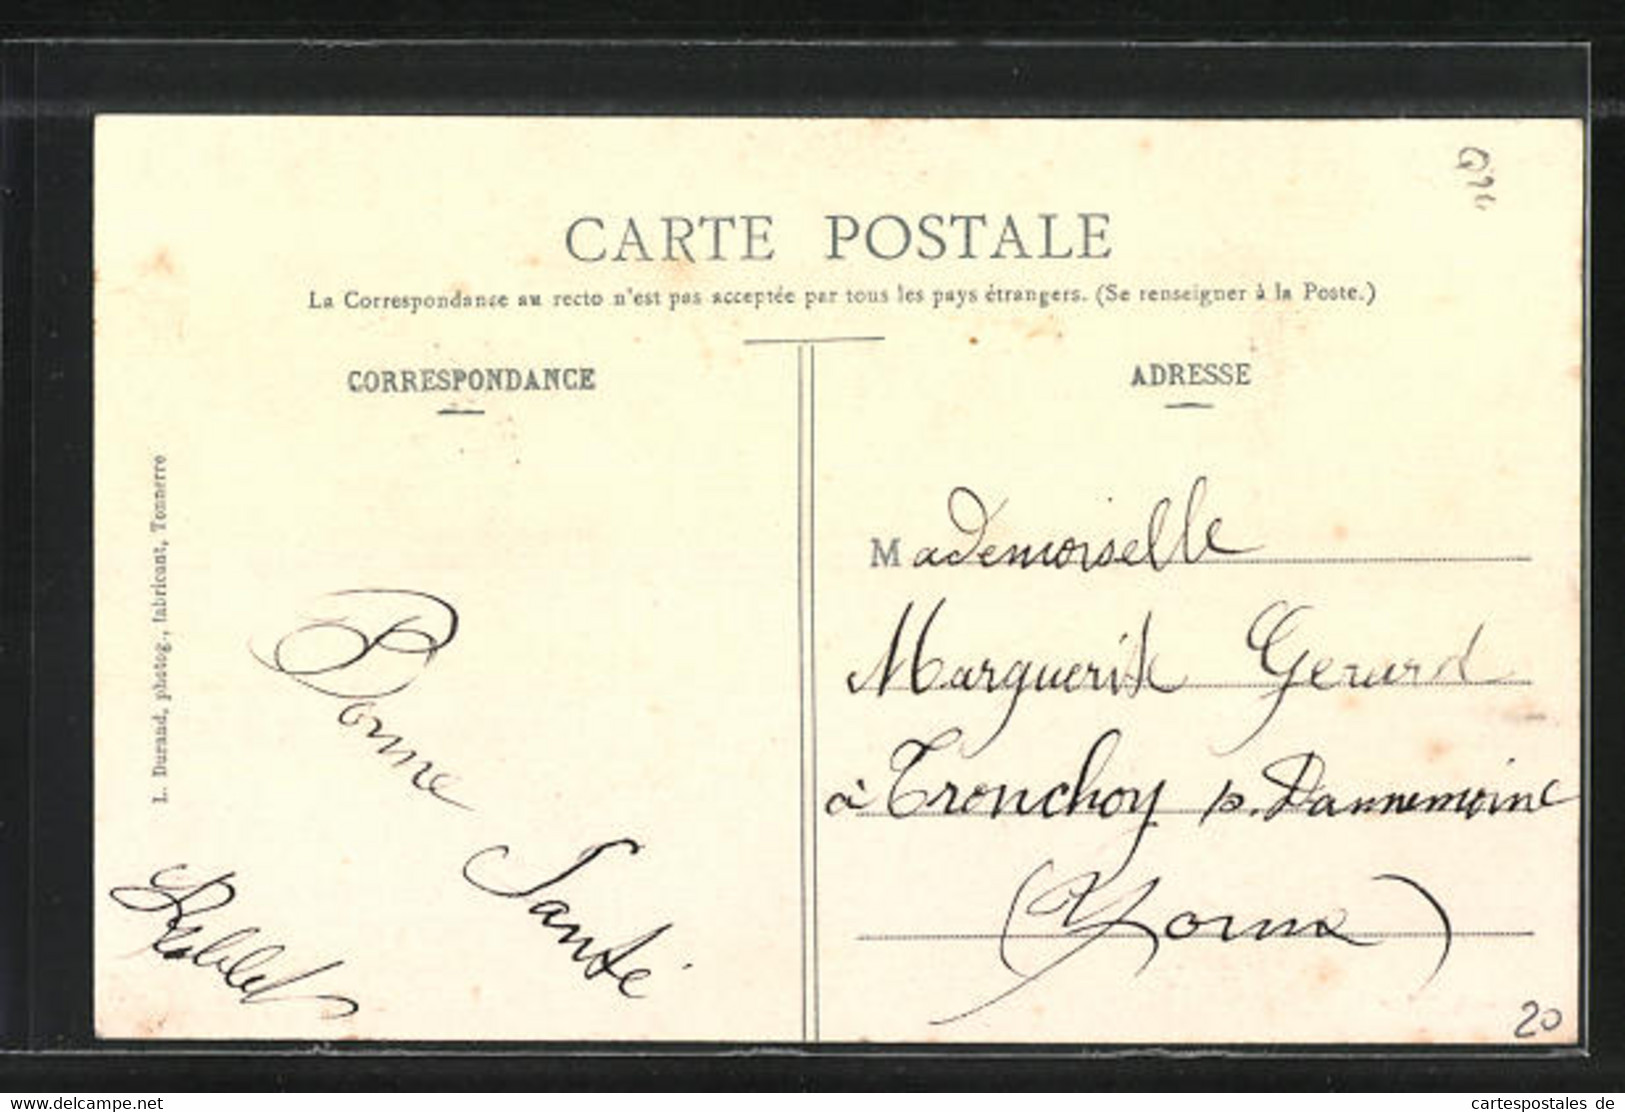 CARTE POSTALE
La Correspondance au recto n'est pas acceptée par tous les pays étrangers. (Se renseigner à la Poste.)
CORRESPONDANCE
L. Durand, photog., fabricant, Tonnerre
Bonne
Santé
ADRESSE
Mademoiselle
Marguerite Gerard
à Tronchoy p. Dannemoine
(Yonne)
20
www.oldthing.de
cartespostales de